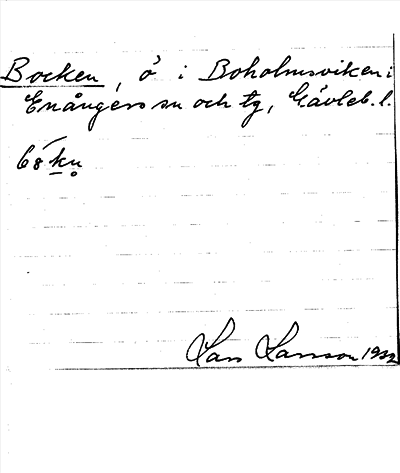 Bocken, ö i Boholmsviken i
Enångers sn och tg, Gävleb. l.
bo̍kn̥
Lars Larsson 1932